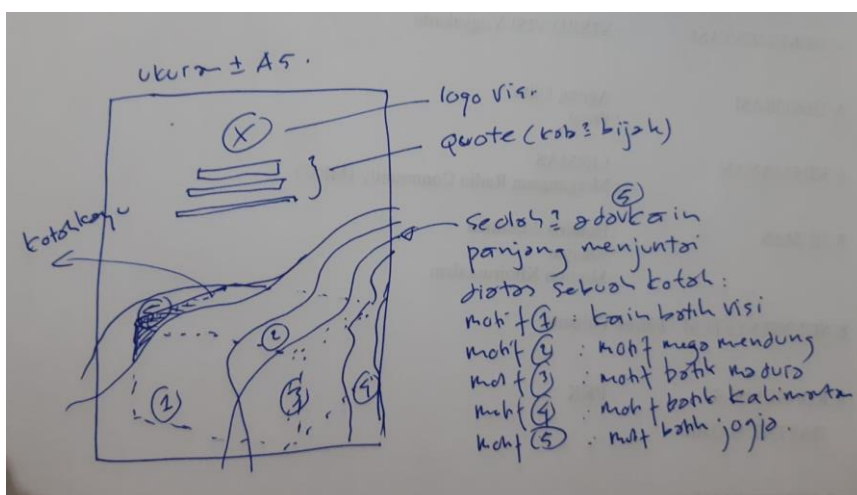 ukuran ± A5.
X
logo visi.
quote (kata² bijak)
kotak kayu
seolah² ada kain
5
panjang menjuntai
diatas sebuah kotak:
motif 1 : kain batik visi
motif 2 : motif mega mendung
motif 3 : motif batik madura
motif 4 : motif batik kalimantan
motif 5 : motif batik jogja.
5
2
1
3
4